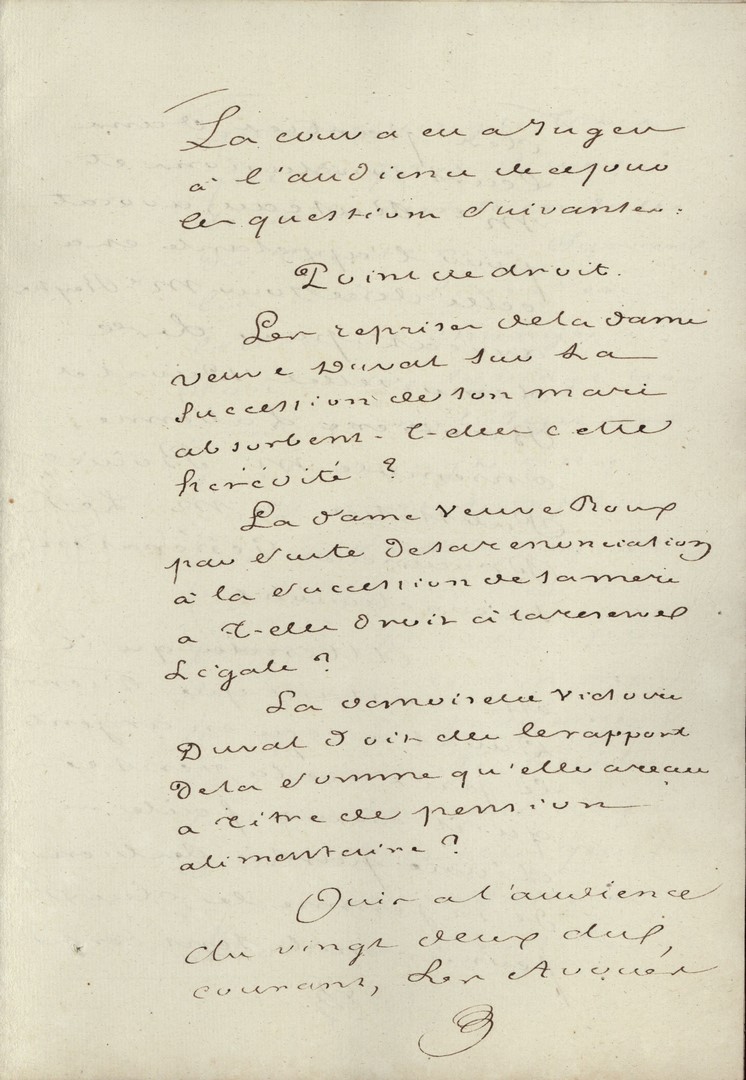 La cour a eu a Juger
à l'audience de ce jour
les questions Suivantes:
Point de droit.
Les reprises de la dame
veuve Duval sur La
Succession de son mari
absorbent-t-elles cette
hérédité ?
La dame Veuve Roux
par suite de sa renonciation
à la succession de sa mère
a t-elle Droit à la reserve
Légale ?
La damoiselle Victoire
Duval Doit elle le rapport
De la somme qu'elle a reçu
a titre de pension
alimentaire ?
Ouis a l'audience
du vingt deux du
courant, Les Avoués